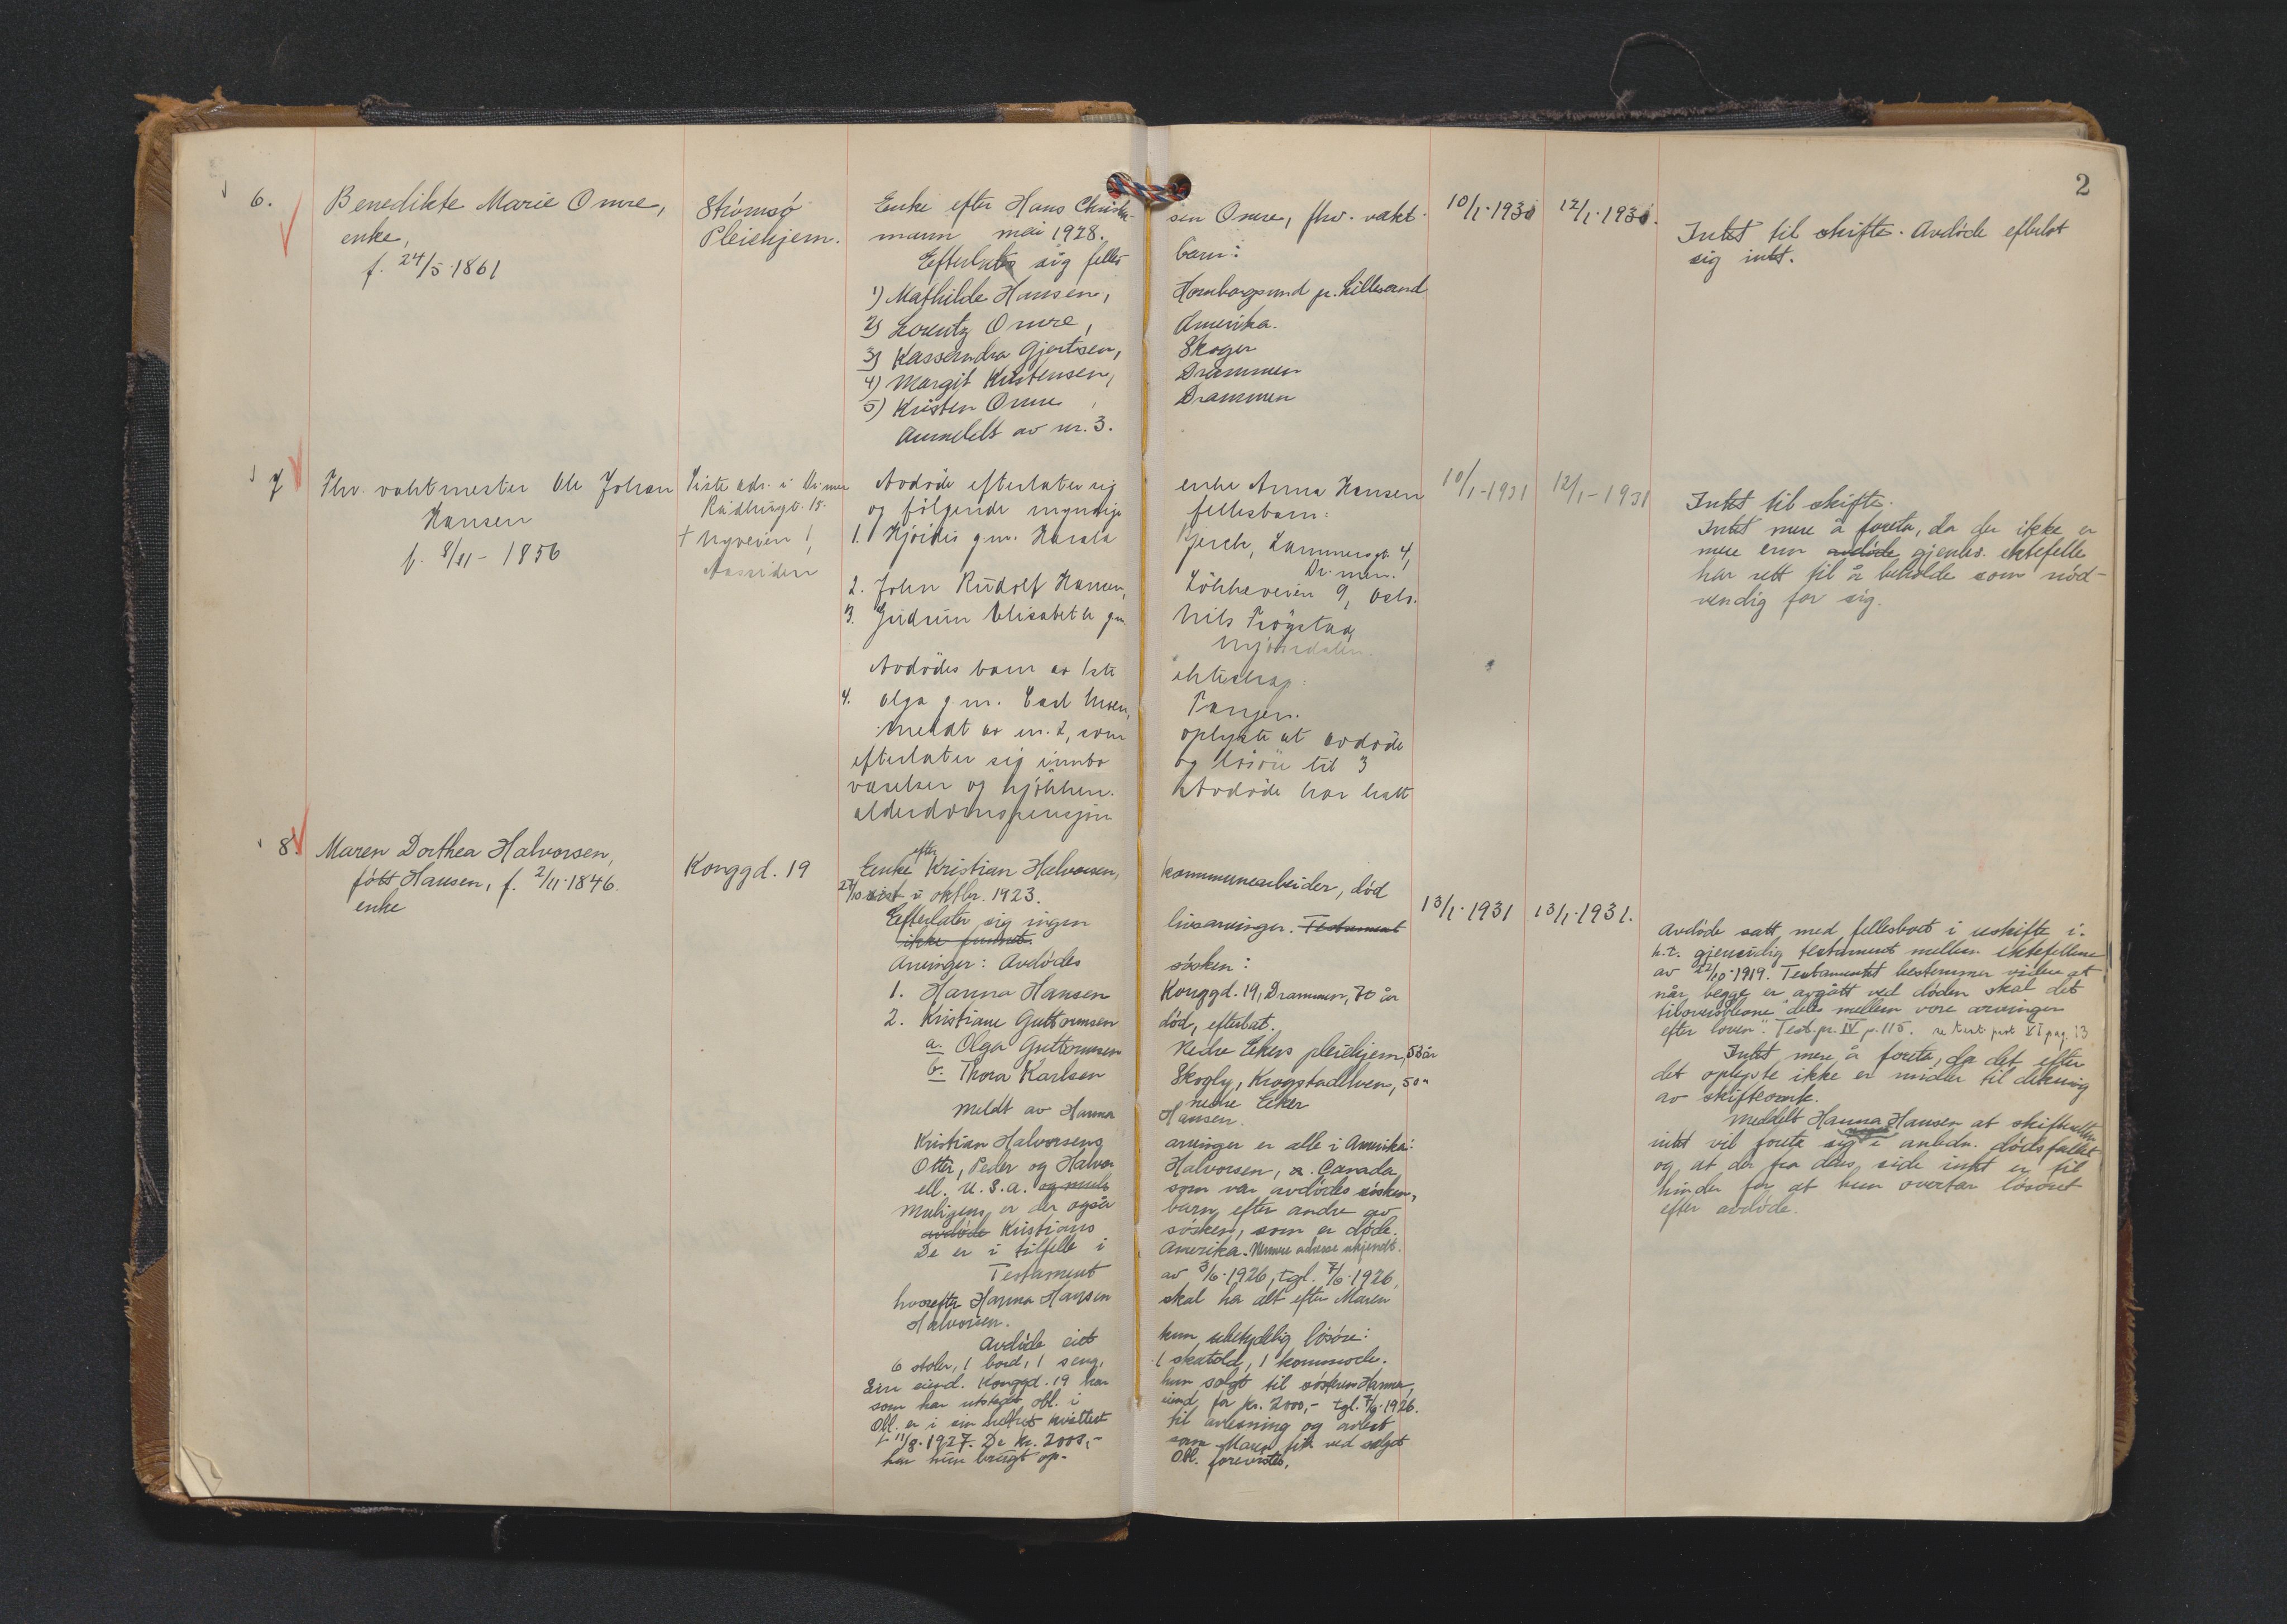 2
6.
Benedikte Marie Omre,
enke,
f. 24/5-1861
Strømsø
Pleiehjem.
Enke efter Hans Christian-
sen Omre, fhv. vakt-
mann mai 1928.
Efterlater sig felles
barn:
1) Mathilde Hansen, Hornborgsund pr. Lillesand
2) Lorentz Omre, Amerika.
3) Kassandra Gjertsen, Skoger
4) Margit Kristensen, Drammen
5) Kristen Omre, Drammen
Anmeldt av nr. 3.
10/1-1930
12/1-1930.
Intet til skifte. Avdøde efterlot
sig intet.
7
Fhv. vaktmester Ole Johan
Hansen
f. 8/11-1856
Siste adr. i Dr.men
Rådhusgt. 15.
† Nyveien 1,
Aassiden
Avdøde efterlater sig enke Anna Hansen
og følgende myndige fellesbarn:
1. Hjørdis g.m. Harald Bjerch, Lammersgt. 4,
Dr.men.
2. John Rudolf Hansen, Løkkeveien 9, Oslo.
3. Gudrun Elisabeth g.m. Nils Frøystad,
Mjøndalen.
Avdødes barn av 1ste ekteskap:
4. Olga g.m. Carl Moen, Tangen.
Meldt av nr. 2, som oplyste at avdøde
efterlater sig innbo og løsøre til 3
værelser og kjøkken. Avdøde har hatt
alderdomspensjon
10/1-1931
12/1-1931
Intet til skifte.
Intet mere å foreta, da der ikke er
mere enn avdøde gjenlev. ektefelle
har rett til å beholde som nød-
vendig for sig.
8.
Maren Dorthea Halvorsen,
født Hansen, f. 2/11-1846.
enke
Konggd. 19
Enke efter Kristian Halvorsen, kommunearbeider, død
27/10 sist i oktbr. 1923.
Efterlater sig ingen livsarvinger. Testament
ikke funnet.
Arvinger: Avdødes søsken:
1. Hanna Hansen Konggd. 19, Drammen, 70 år
2. Kristiane Guttormsen død, efterlat.
a. Olga Guttormsen Nedre Ekers pleiehjem, 53 år
b. Thora Karlsen Skogly, Krogstadelven, 50 "
nedre Eker
Meldt av Hanna Hansen.
Kristian Halvorsens arvinger er alle i Amerika:
Otter, Peder og Halvor Halvorsen, a. Canada,
ell. U.S.A. og mulig som var avdødes søsken,
Muligens er der også barn efter andre av
avdøde Kristians søsken, som er døde.
De er i tilfelle i Amerika. Nærmere adresse ukjendt.
Testament av 3/6-1926, tgl. 7/6-1926,
hvorefter Hanna Hansen skal ha alt efter Maren
Halvorsen.
Avdøde eiet kun ubetydelig løsøre:
6 stoler, 1 bord, 1 seng, 1 skatold, 1 kommode.
Sin eiend. Konggd. 19 har hun solgt til søsteren Hanna,
som har utstedt obl. i eiend. for kr. 2000,- tgl. 7/6-1926.
Obl. er i sin helhet kvittert til avlesning og avlest
11/8-1927. De kr. 2000,- som Maren fik ved salget
har hun brugt op. Obl. forevistes.
13/1-1931
13/1-1931.
Avdøde satt med fellesboet i uskifte i.
h.t. gjensidig testament mellem ektefellene
av 22/10-1919. Testamentet bestemmer videre at
når begge er avgått ved døden skal det
tiloversblevne "deles mellem vore arvinger
efter loven". Test.pr. IV p. 115. se test. prot VI pag. 13
Intet mere å foreta, da det efter
det oplyste ikke er midler til dekning
av skifteomk.
Meddelt Hanna Hansen at skifteretten
intet vil foreta sig i anledn. dødsfallet
og at der fra dens side intet er til
hinder for at hun overtar løsøret
efter avdøde.